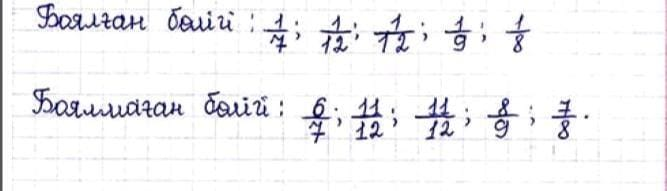 Боялған бөлігі: 1/7; 1/12; 1/12; 1/9; 1/8
Боялмаған бөлігі: 6/7; 11/12; 11/12; 8/9; 7/8.